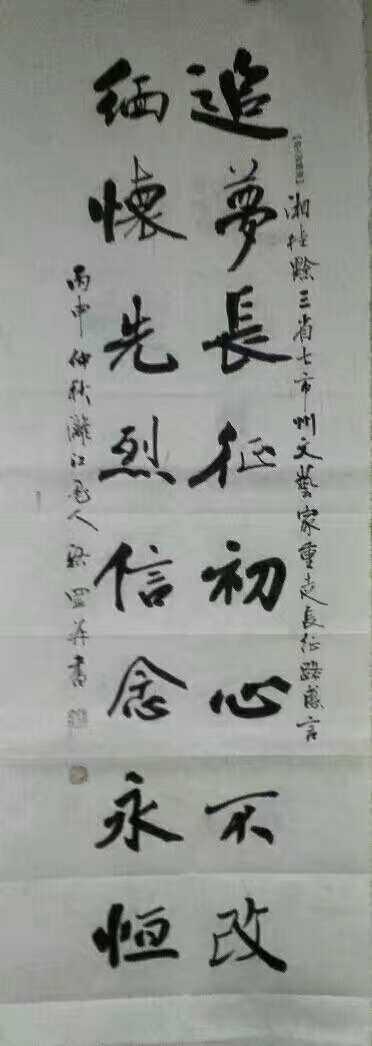 湘桂黔三省七市州文藝家重走長征路感言
追夢長征初心不改
緬懷先烈信念永恒
丙申仲秋灕江 人 並書